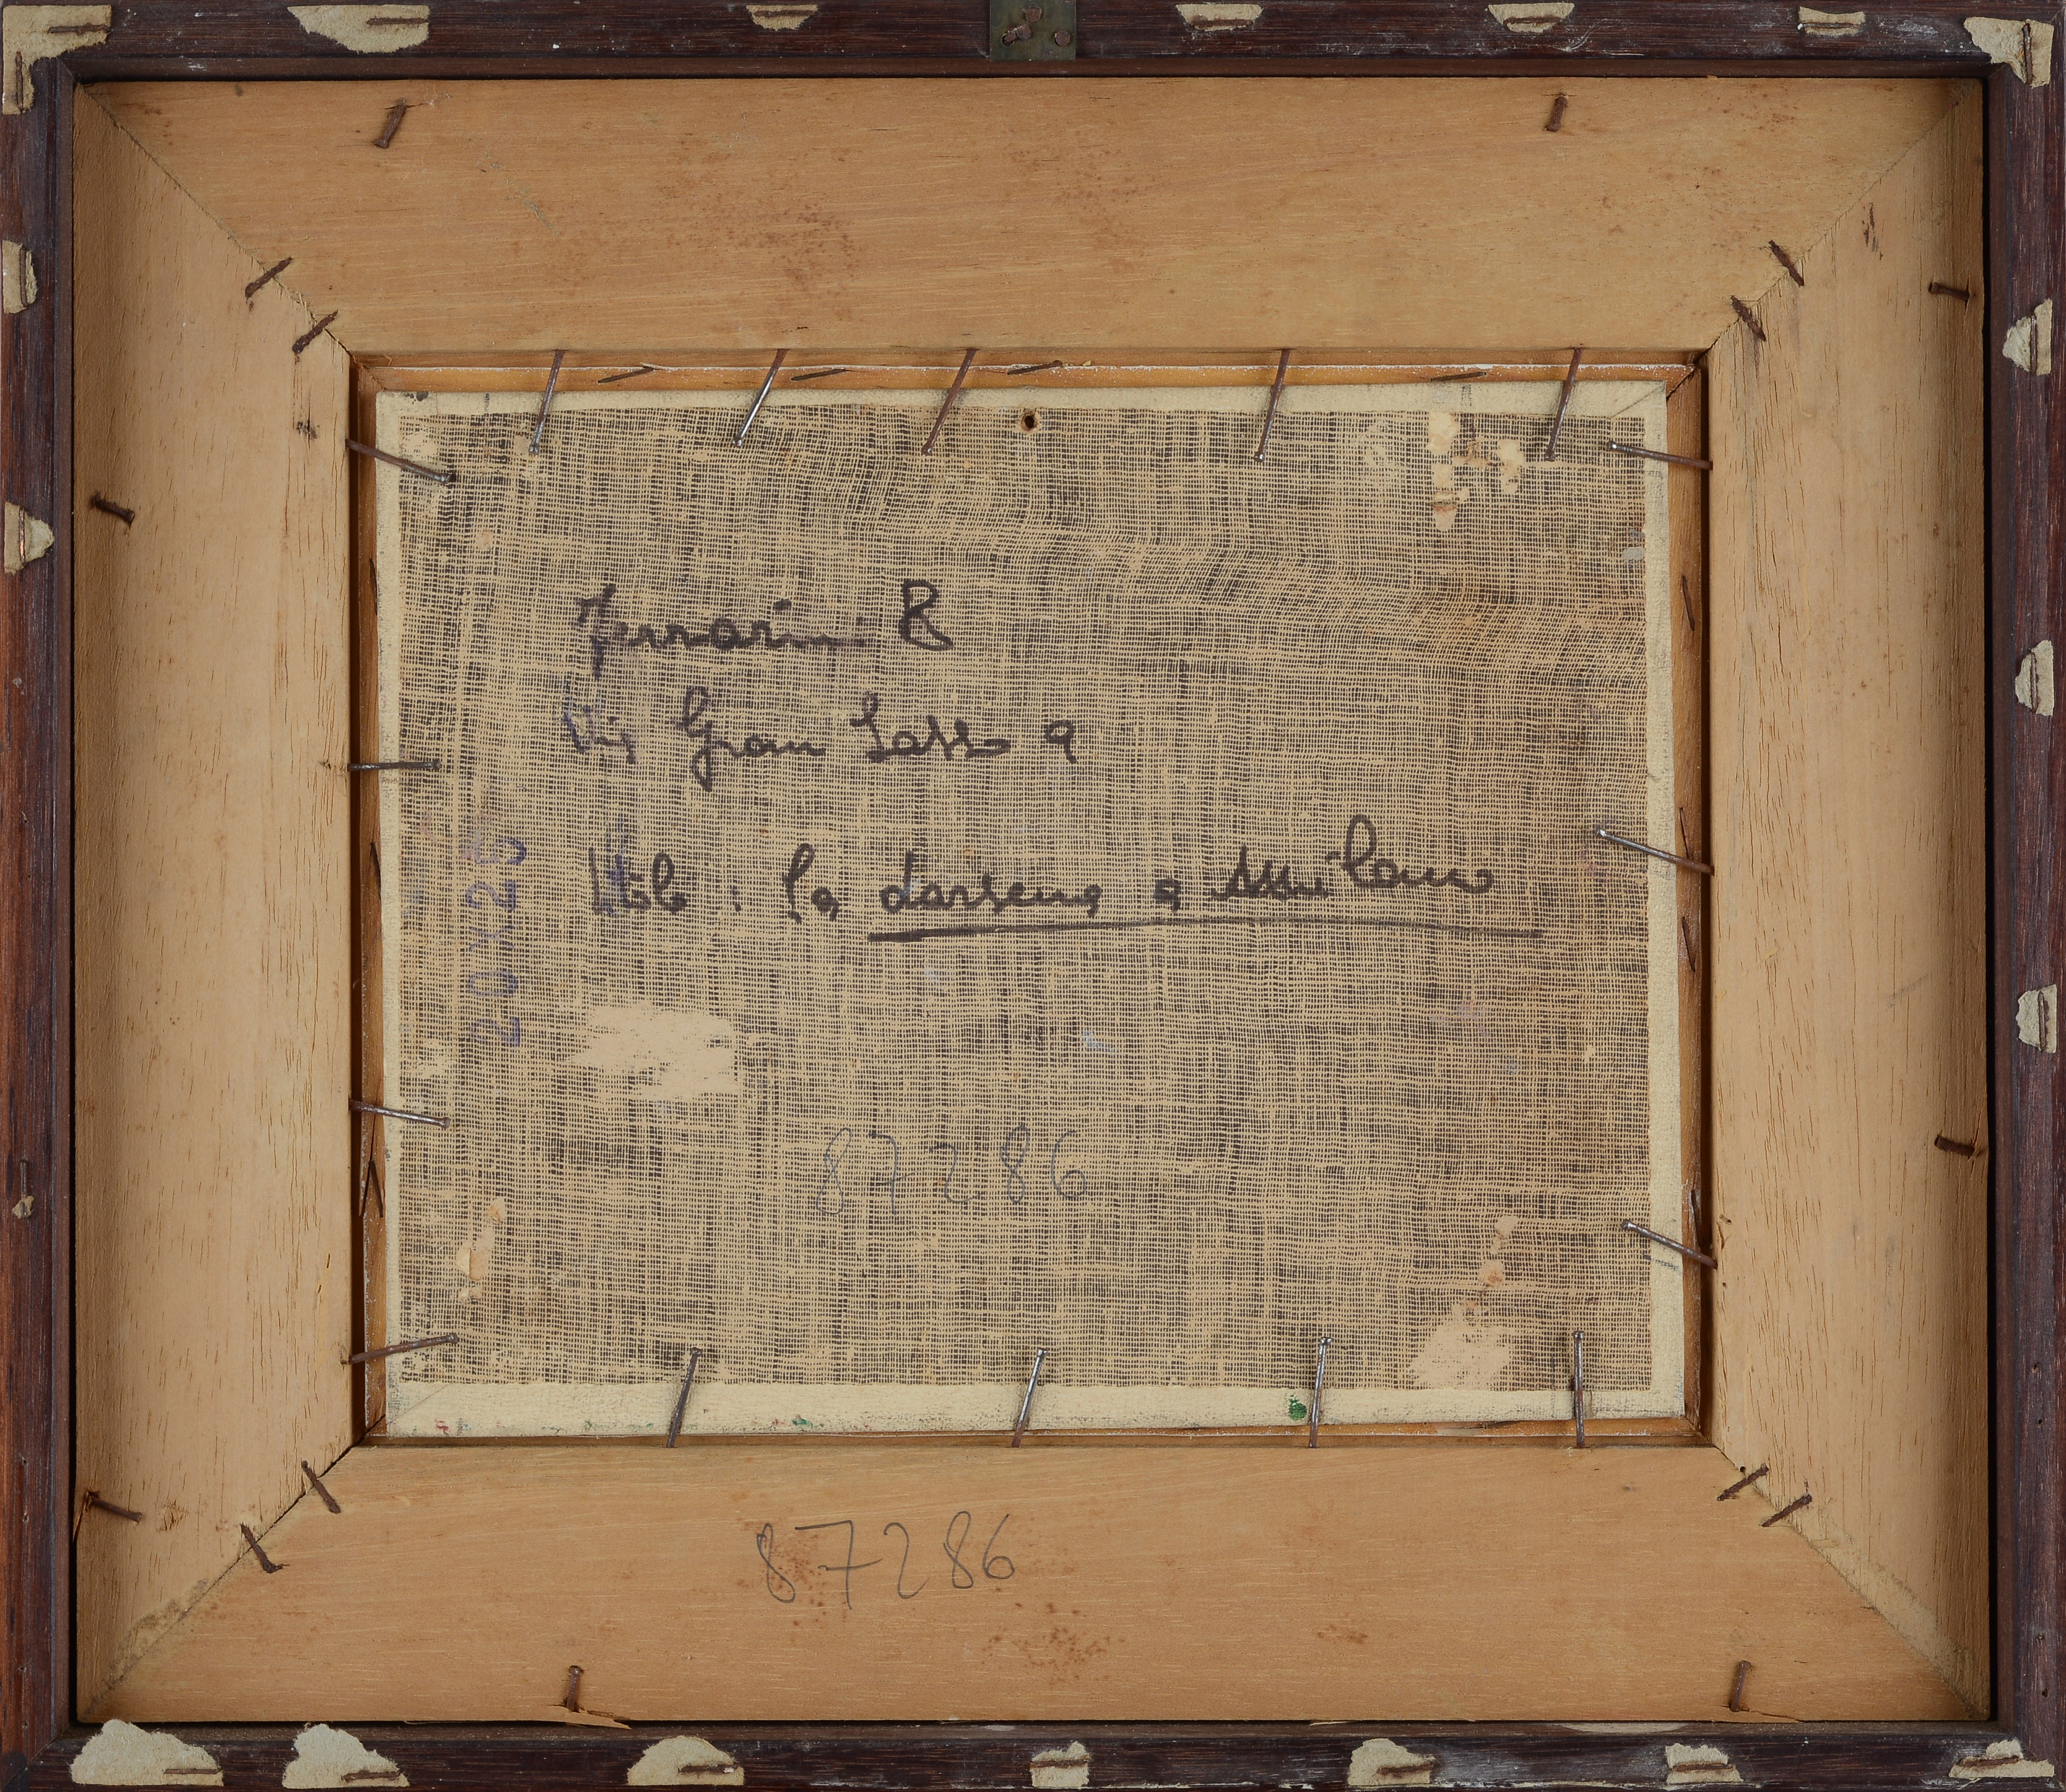 Ferrarini R
Via Gran Sasso 9
titolo : la darsena a Milano
20X25
87286
87286